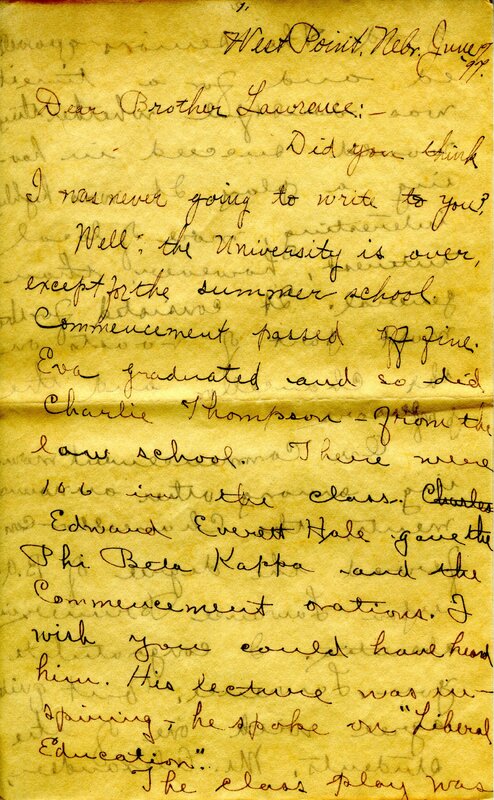 1.
West Point, Nebr. June 9
'97.
Dear Brother Lawrence:-
Did you think
I was never going to write to you?
Well, the University is over,
except for the summer school.
Commencement passed off fine.
Eva graduated and so did
Charlie Thompson - from the
law school. There were
106 in the class. Charles
Edward Everett Hale gave the
Phi Beta Kappa and the
Commencement orations. I
wish you could have heard
him. His lecture was in-
spiring - he spoke on "Liberal
Education".
The class play was